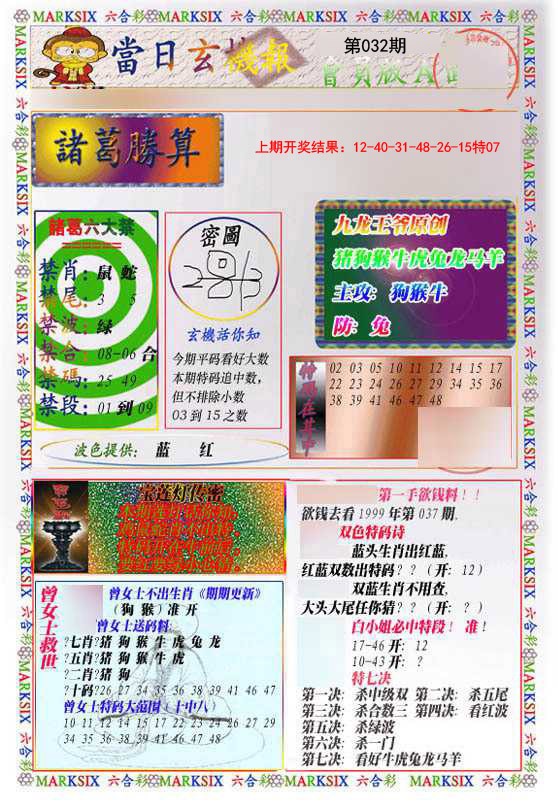 MARKSIX 六合彩 MARKSIX 六合彩 MARKSIX 六合彩 MARKSIX 六合彩
當日玄機報
第032期
會員版A
諸葛勝算
上期开奖结果：12-40-31-48-26-15特07
諸葛六大禁
禁肖：鼠 蛇
禁尾：3 5
禁波：绿
禁合：08-06 合
禁碼：25 49
禁段：01 到 09
密圖
玄機話你知
今期平码看好大数
本期特码追中数,
但不排除小数
03 到 15 之数
九龙王爷原创
猪狗猴牛虎兔龙马羊
主攻：狗猴牛
防：兔
特碼在其中
02 03 05 10 11 12 14 15 17
22 23 24 26 27 29 34 35 36
38 39 41 46 47 48
波色提供： 蓝 红
宝莲灯传密
曾女士救世
曾女士不出生肖《期期更新》
(狗 猴) 准 开
曾女士送码料
?七肖?猪 狗 猴 牛 虎 兔 龙
?五肖?猪 狗 猴 牛 虎
?二肖?猪 狗
?十码?26 27 34 35 36 38 39 41 46 47
曾女士特码大范围 (十中八)
10 11 12 14 15 17 22 23 24 26 27 29
34 35 36 38 39 41 46 47 48
第一手欲钱料！！
欲钱去看 1999 年第 037 期.
双色特码诗
蓝头生肖出红蓝.
红蓝双数出特码？？ (开：12)
双蓝生肖不用查.
大头大尾任你猜？？ (开：？)
白小姐必中特段！ 准！
17-46 开：12
10-43 开：？
特七决
第一决：杀中级双 第二决：杀五尾
第三决：杀合数三 第四决：看红波
第五决：杀绿波
第六决：杀一门
第七决：看好牛虎兔龙马羊
MARKSIX 六合彩 MARKSIX 六合彩 MARKSIX 六合彩 MARKSIX 六合彩